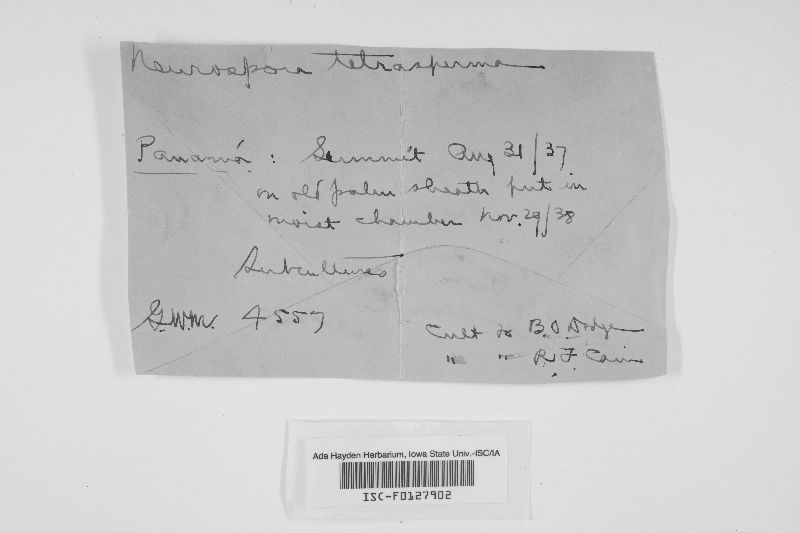 Neurospora tetrasperma
Panamá : Summit Aug 31/37
on old palm sheath put in
moist chamber Nov. 29/38
Subcultures
G.W.M. 4557
Cult to B.O. Dodge
" " R.F. Cain
Ada Hayden Herbarium, Iowa State Univ.-ISC/IA
ISC-F0127902